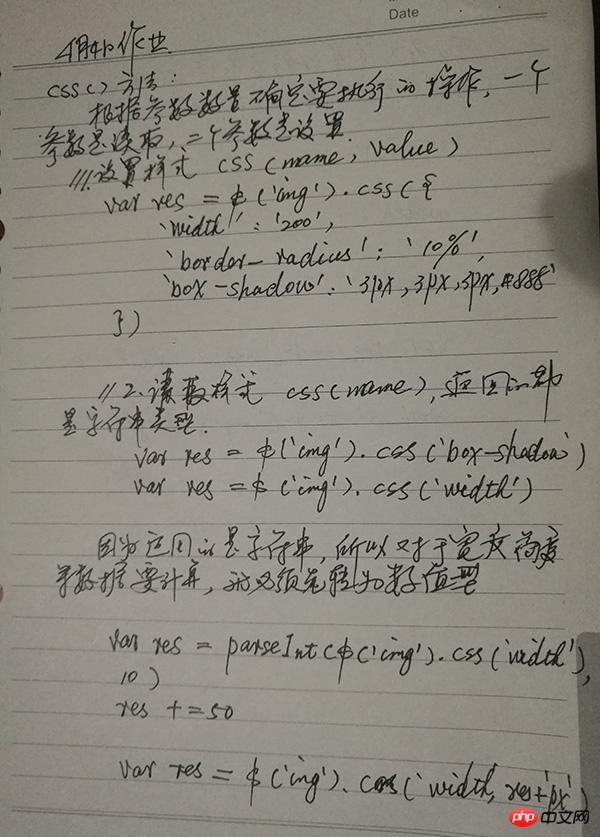 Date
4月4日作业
css()方法:
根据参数数量不确定要执行的操作, 一个
参数是读取, 二个参数是设置
//1.设置样式 css(name, value)
var res = $('img').css({
'width': '200',
'border-radius': '10%',
'box-shadow': '3px,3px,3px,#888'
})
//2.读取样式 css(name), 返回的都
是字符串类型.
var res = $('img').css('box-shadow')
var res = $('img').css('width')
因为返回的是字符串, 所以对于宽度高度
等数据要计算, 必须先转为数值型
var res = parseInt($('img').css('width'),
10)
res += 50
var res = $('img').css('width, res+'px')
php 中文网